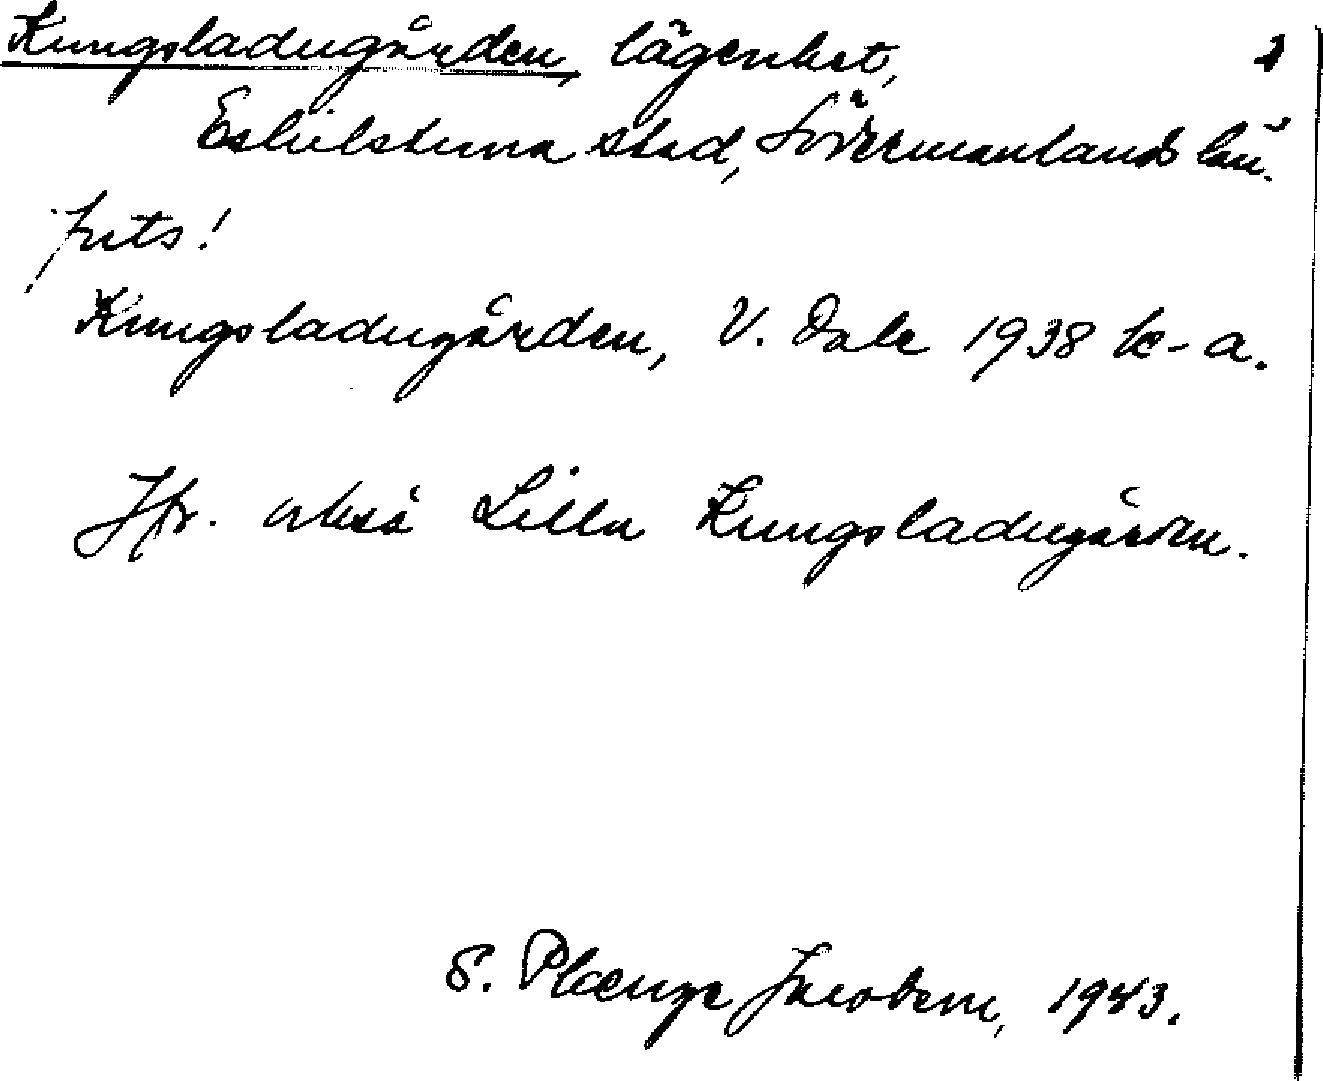 Kungsladugården, lägenhet, 2
Eskilstuna stad, Södermanlands län.
hits!
Kungsladugården, V. Dale 1938 k-a.
Jfr. också Lilla Kungsladugården.
S. Plænge Jacobson, 1943.